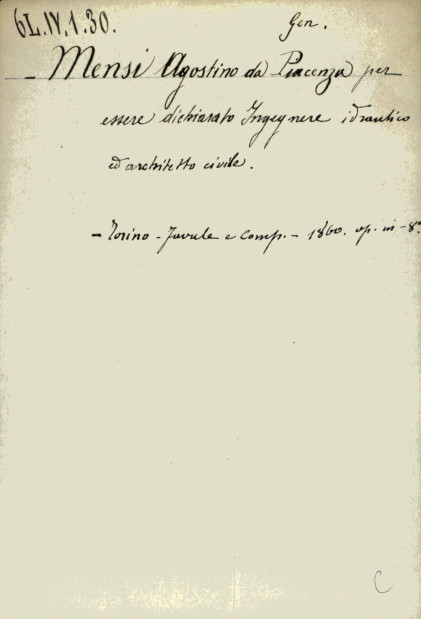 6L.IV.1.30.
Gen.
- Mensi Agostino da Piacenza per
essere dichiarato Ingegnere idraulico
ed architetto civile.
- Torino - Favale e Comp. - 1860. op. in - 8°
C